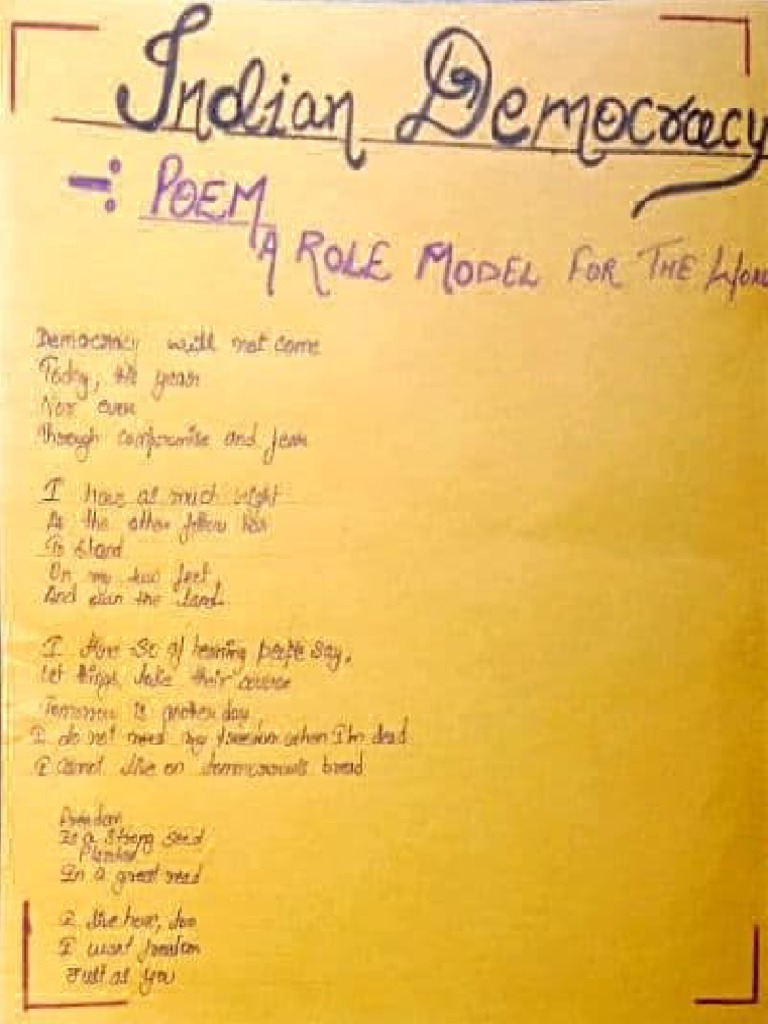 Indian Democracy
-: POEM
A ROLE MODEL FOR THE
Democracy will not come
Today, this year
Nor ever
Through compromise and fear
I have as much right
As the other fellow has
To stand
On my two feet,
And own the land.
I tire so of hearing people say,
Let things take their course
Tomorrow is another day
I do not need my freedom when I'm dead
I cannot live on tommorrow's bread
Freedom
Is a strong seed
Planted
In a great need
I live here, too
I want freedom
Just as you